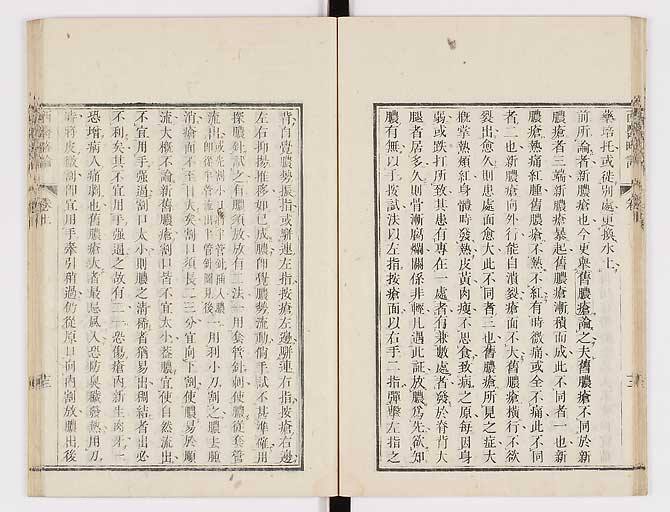 藥培托或徙別處更換水土
前所論者新膿瘡也今更舉舊膿瘡論之夫舊膿瘡不同於新
膿瘡者三端新膿瘡暴起舊膿瘡漸積而成此不同者一也新
膿瘡熱痛紅腫舊膿瘡不熱不紅有時微痛或全不痛此不同
者二也新膿瘡向外行能自潰裂瘡面不大舊膿瘡橫行不欲
裂出愈久則患處面愈大此不同者三也舊膿瘡所見之症大
概掌熱頰紅身體時發熱皮黃肉瘦不思食致病之原每因身
弱或跌打所致其患有專在一處者有兼數處者發於脊背大
腿者居多久則骨漸腐爛關係非輕凡遇此証放膿爲先欲知
膿有無以手按試法以左指按瘡面以右手二指彈擊左指之
背自覺膿勢振指或駢連左指按瘡左邊駢連右指按瘡右邊
左右抑揚推移如已成膿卽覺膿勢流動倘手試不甚準確用
探膿針試之有膿須放放有二法一用套管針刺使膿從套管
流出
一用利小刀割之膿去腫
消瘡面不至日大矣割口須長二三分宜向下割使膿易於順
流大概不論新舊膿瘡割口皆不宜太小葢膿宜使自然流出
不宜用手強逼割口太小則膿之清稀者猶易出稠結者出必
不利矣其不宜用手強逼之故有二一恐傷瘡內新生肉牙一
恐增病人痛劇也舊膿瘡大者最忌風入恐防臭穢發熱用刀
時將皮微割卽宜用手牽引稍過仍從原口向內割放膿出後
西醫略論